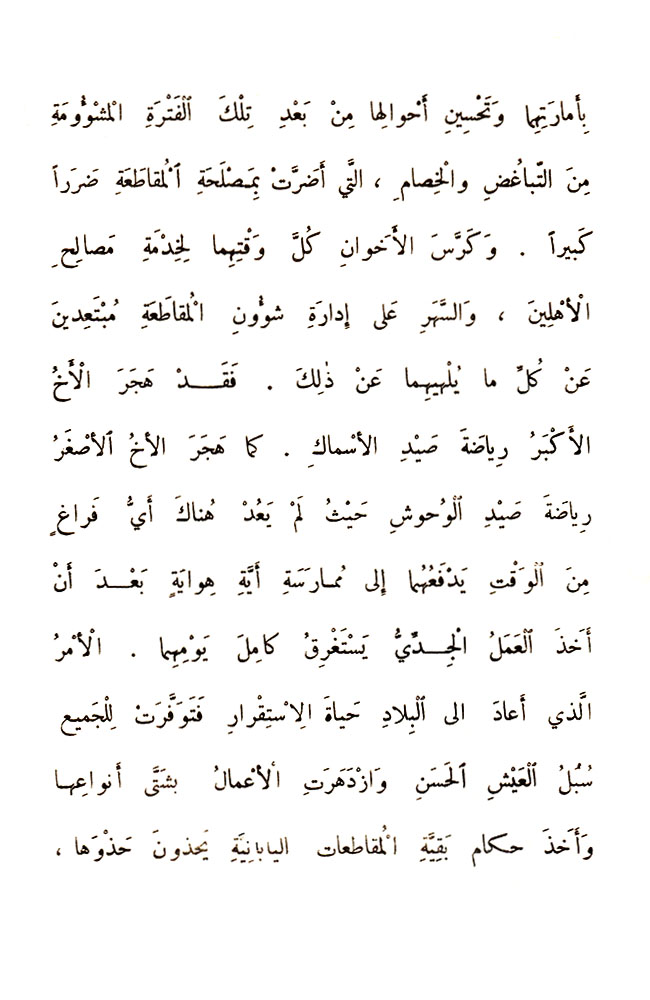 بِأَمارَتِهِما وَتَحْسِينِ أَحْوالِها مِنْ بَعْدِ تِلْكَ ٱلْفَتْرَةِ الْمَشْؤُومَةِ
مِنَ التَّباغُضِ والْخِصامِ ، الَّتي أَضَرَّتْ بِمَصْلَحَةِ ٱلْمُقاطَعَةِ ضَرَراً
كَبيراً . وَكَرَّسَ الأَخوانِ كُلَّ وَقْتِهِما لِخِدْمَةِ مَصالِحِ
الْأَهْلِينَ ، وَالسَّهَرِ عَلى إِدارَةِ شوُؤنِ الْمُقاطَعَةِ مُبْتَعِدينَ
عَنْ كُلِّ ما يُلْهيهِما عَنْ ذٰلِكَ . فَقَدْ هَجَرَ الْأَخُ
الأَكْبَرُ رِياضَةَ صَيْدِ الأَسْماكِ . كما هَجَرَ الأخُ ٱلأَصْغَرُ
رِياضَةَ صَيْدِ ٱلْوُحوشِ حَيْثُ لَمْ يَعُدْ هُناكَ أَيُّ فَراغٍ
مِنَ ٱلْوَقْتِ يَدْفَعُهُما إِلى مُمارَسَةِ أَيَّةِ هِوايَةٍ بَعْدَ أَنْ
أَخَذَ ٱلْعَمَلُ الْجِدِّيُّ يَسْتَغْرِقُ كامِلَ يَومِهِما . الْأَمْرُ
الَّذي أَعادَ الى ٱلْبِلادِ حَياةَ الِاسْتِقْرارِ فَتَوَفَّرَتْ لِلْجَميعِ
سُبُلُ ٱلْعَيْشِ ٱلْحَسَنِ وَازْدَهَرَتِ ٱلأَعْمالُ بِشَتَّى أَنواعِها
وَأَخَذَ حكام بَقِيَّةِ الْمُقاطعات اليابانِيَّةِ يَحذونَ حَذْوَها ،